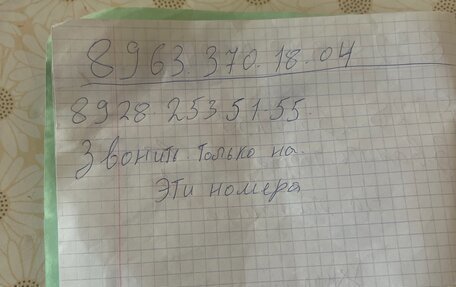 8963.370.18.04
8928.253.51.55.
Звонить только на
эти номера